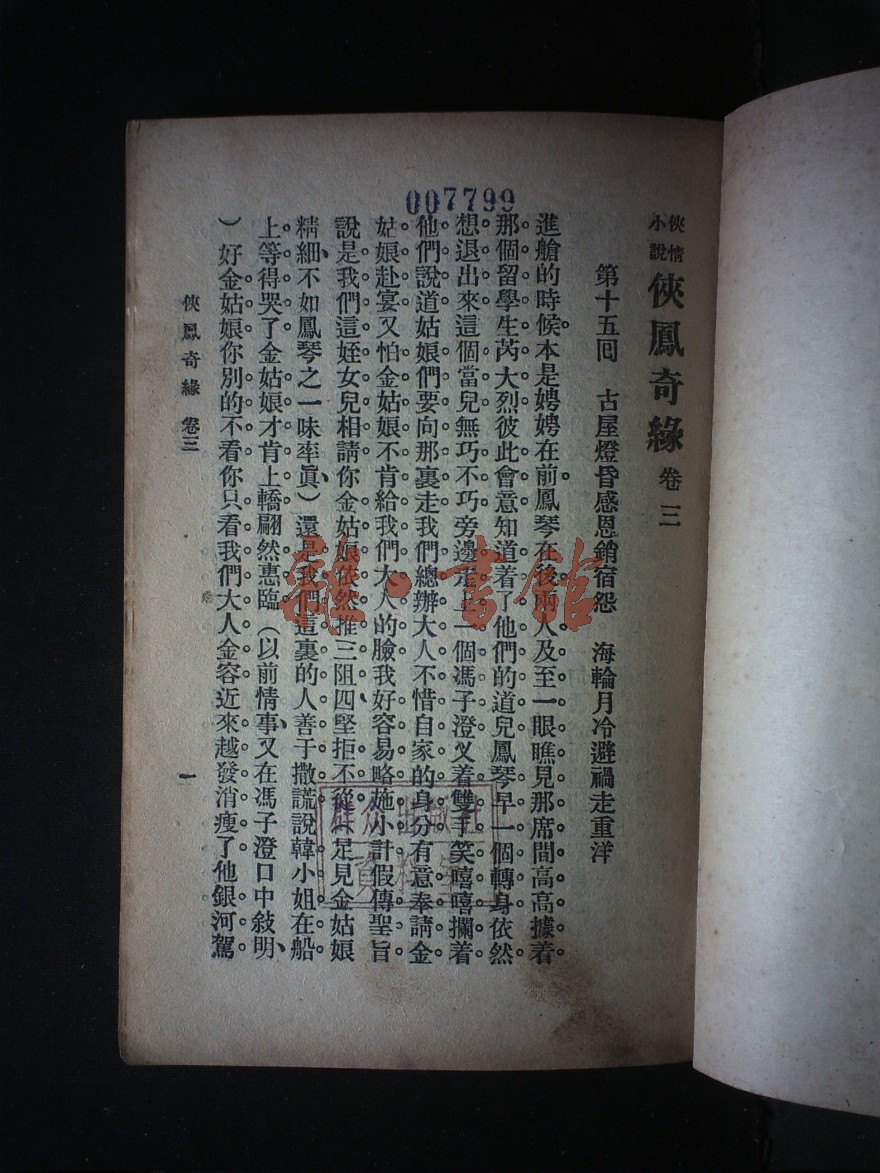 007799
俠情小說 俠鳳奇緣 卷三
第十五回 古屋燈昏感恩銷宿怨 海輪月冷避禍走重洋
進艙的時候。本是娉娉在前。鳳琴在後。兩人及至一眼瞧見那席間高高據着
那個留學生芮大烈。彼此會意。知道着了他們的道兒。鳳琴早一個轉身。依然
想退出來。這個當兒。無巧不巧。旁邊走上一個馮子澄。叉着雙手。笑嘻嘻攔着
他們說道。姑娘們要向那裏走。我們總辦大人。不惜自家的身分。有意奉請金
姑娘赴宴。又怕金姑娘不肯給我們大人的臉。我好容易略施小計。假傳聖旨
說是我們這姪女兒相請。你金姑娘依然推三阻四。堅拒不從。(足見金姑娘
精細、不如鳳琴之一味率眞、)還是我們這裏的人善于撒謊。說韓小姐在船
上等得哭了。金姑娘才肯上轎。翩然惠臨。(以前情事、又在馮子澄口中敍明、
)好金姑娘。你別的不看。你只看我們大人金容。近來越發消瘦了。他銀河駕
俠鳳奇緣 卷三
一
龍·書館